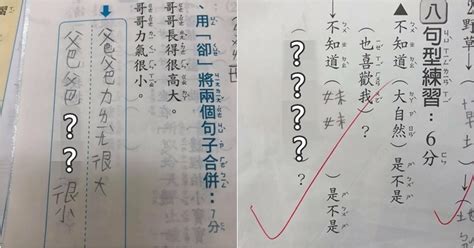 、用「卻」將兩個句子合併:
哥哥長得很高大。
哥哥力氣很小。
爸爸力 很大
爸爸???很小
八 句型練習:6分
▲不知道(大自然)是不是
(也喜歡我)?
不知道(妹妹)是不是
(????)?